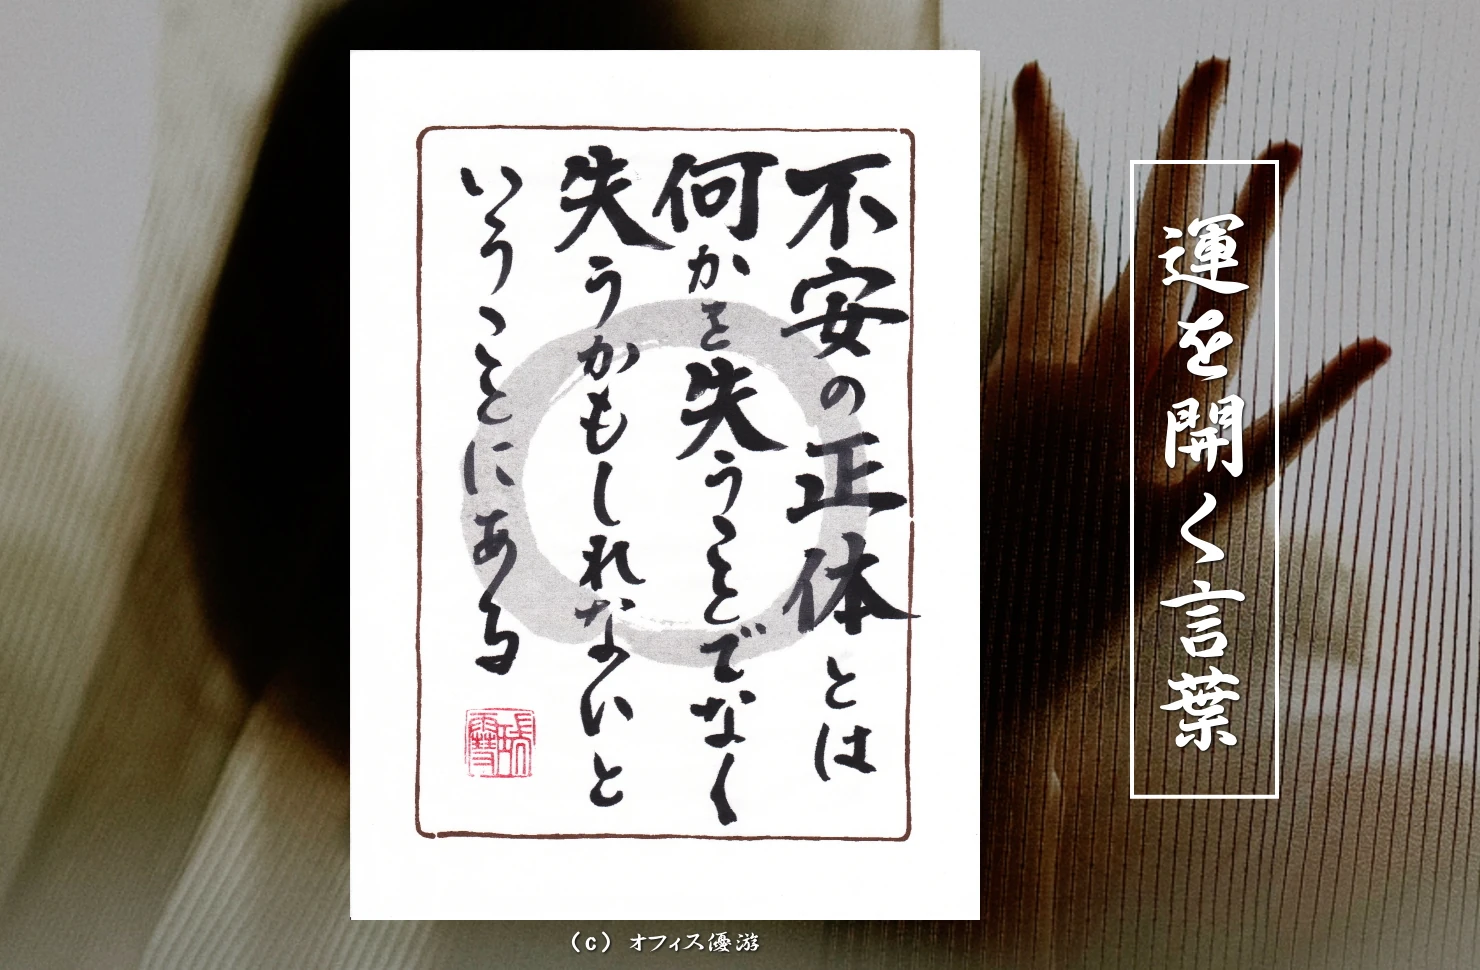 不安の正体とは
何かを失うことでなく
失うかもしれないと
いうことにある
運を開く言葉
(c) オフィス優游